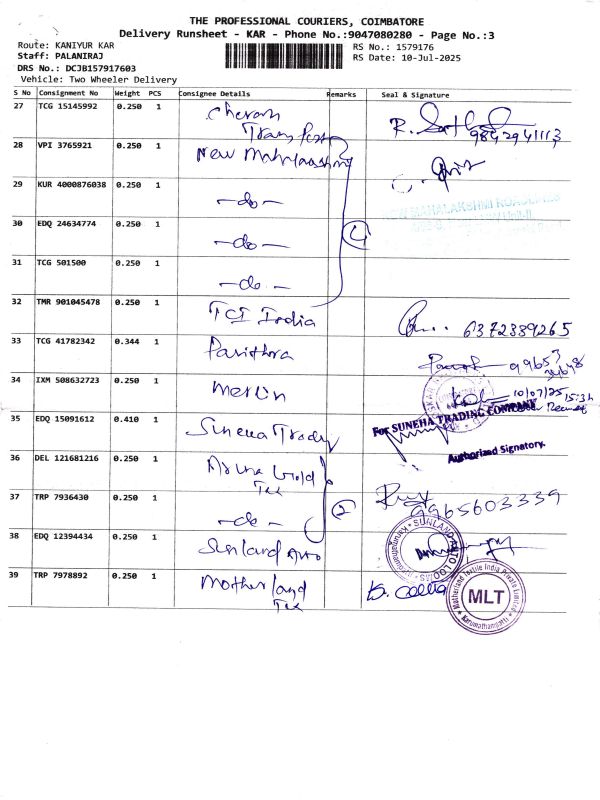 THE PROFESSIONAL COURIERS, COIMBATORE
Delivery Runsheet - KAR - Phone No.:9047080280 - Page No.:3
Route: KANIYUR KAR
RS No.: 1579176
Staff: PALANIRAJ
RS Date: 10-Jul-2025
DRS No.: DCJB157917603
Vehicle: Two Wheeler Delivery
S No Consignment No Weight PCS Consignee Details Remarks Seal & Signature
27 TCG 15145992 0.250 1 Cheran
Transport
9842941113
28 VPI 3765921 0.250 1 New Mahalaashmy
29 KUR 4000876038 0.250 1 -do-
NEW MAHALAKSHMI ROADLINES
30 EDQ 24634774 0.250 1 -do-
31 TCG 501500 0.250 1 -do-
32 TMR 901045478 0.250 1 TCI India 6372389265
33 TCG 41782342 0.344 1 Pavithra
34 IXM 508632723 0.250 1 Merlin 10/07/25
35 EDQ 15091612 0.410 1 Suneha Tradey
For SUNEHA TRADING COMPANY
Authorized Signatory.
36 DEL 121681216 0.250 1 Aruna Gold
Tex
37 TRP 7936430 0.250 1 -do- 2 9965603339
38 EDQ 12394434 0.250 1 Sunland Auto
39 TRP 7978892 0.250 1 Motherland
Tex
Motherland Textile India Private Limited
MLT
Karumathampatti